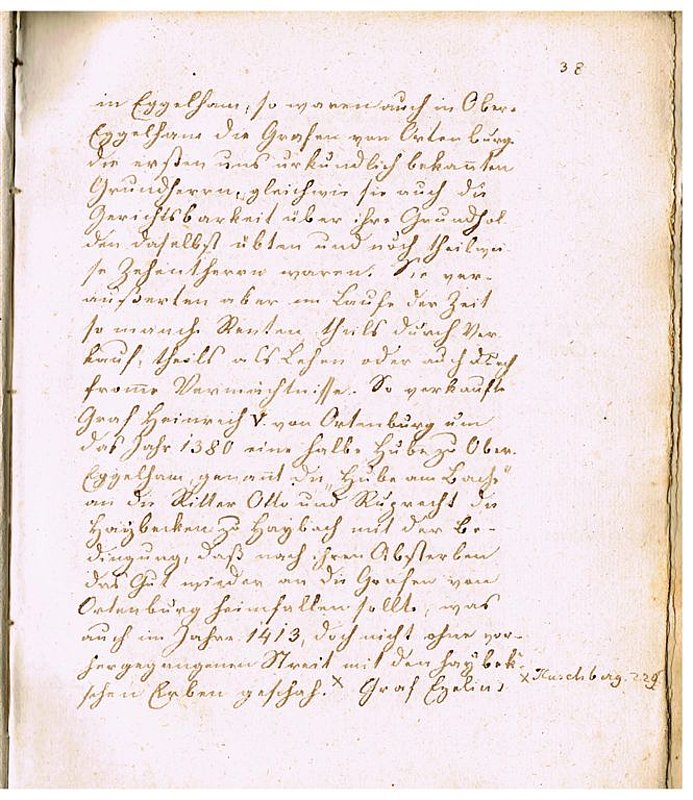 38
in Eggelham, so waren auch in Ober-
Eggelham die Grafen von Ortenburg
die ersten uns urkundlich bekannten
Grundherrn, gleichwie sie auch die
Gerichtsbarkeit über ihre Grundhol-
den daselbst übten und noch theilwei-
se Zehentherrn waren. Sie ver-
äußerten aber im Laufe der Zeit
so manche Renten theils durch Ver-
kauf, theils als Lehen oder auch durch
from̅e Vermächtnisse. So verkaufte
Graf Heinrich V. von Ortenburg um
das Jahr 1380 eine halbe Hube zu Ober-
Eggelham, genan̅t die „Hube am Bache"
an die Ritter Otto und Ruprecht die
Haybecken zu Haybach mit der Be-
dingung, daß nach ihren Absterben
das Gut wieder an die Grafen von
Ortenburg heimfallen sollte, was
auch im Jahre 1413, doch nicht ohne vor-
hergegangenen Streit mit den haybek-
schen Erben geschah. x Graf Ezelin
x Huschberg. 229